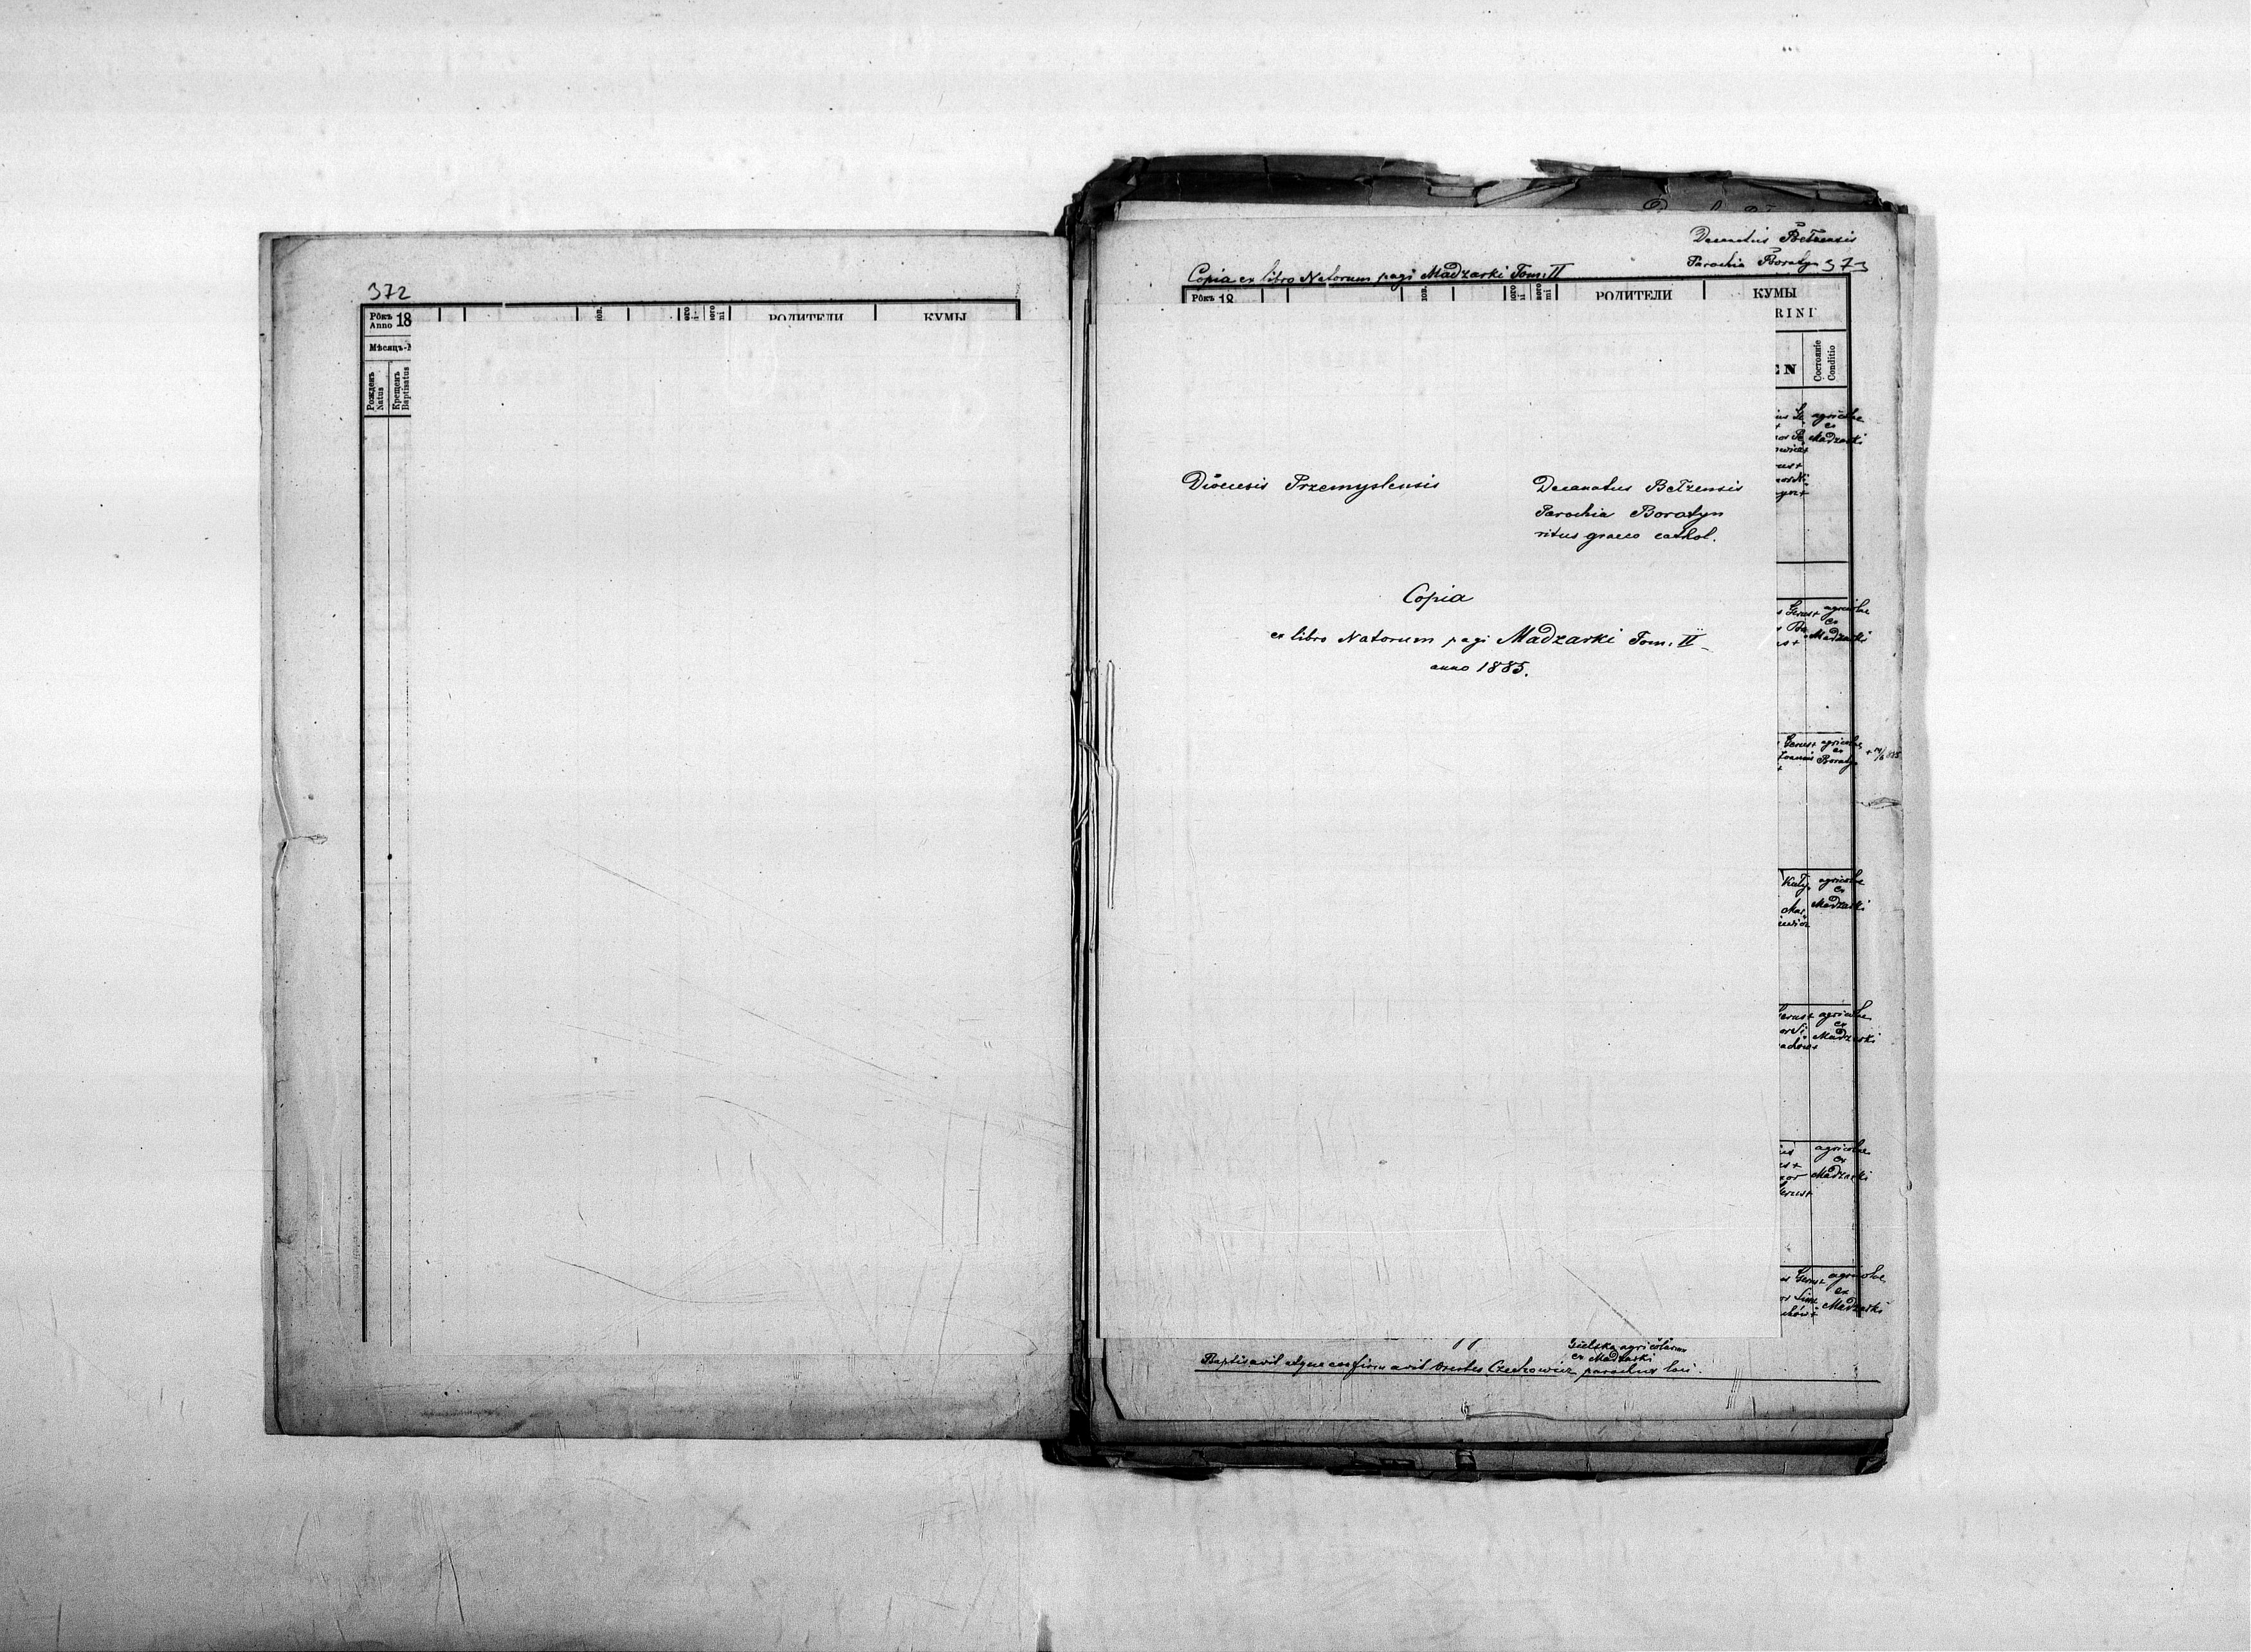 372
Рôкъ
Anno 18
РОДИТЕЛИ
КУМЫ
Мѣсяцъ-
Рожденъ
Natus
Крещенъ
Baptisatus
Decanatus Bełzensis
Parochia Boratyn 373
Copia ex libro Natorum pagi Madzarki Tom. II
Рôкъ 18
РОДИТЕЛИ
КУМЫ
RINI
EN
Состоянїе
Conditio
agricolae
ex
Madzarki
Dioecesis Przemyslensis
Decanatus Bełzensis
Parochia Boratyn
ritus graeco cathol.
Copia
ex libro Natorum pagi Madzarki Tom. II
anno 1885.
agricolae
ex
Madzarki
agricolae
ex
Boratyn
agricolae
ex
Madzarki
agricolae
ex
Madzarki
agricolae
ex
Madzarki
agricolae
ex
Madzarki
agricolarum
ex Madzarki
Baptisavit atque confirmavit Orestes Czechowicz parochus loci.